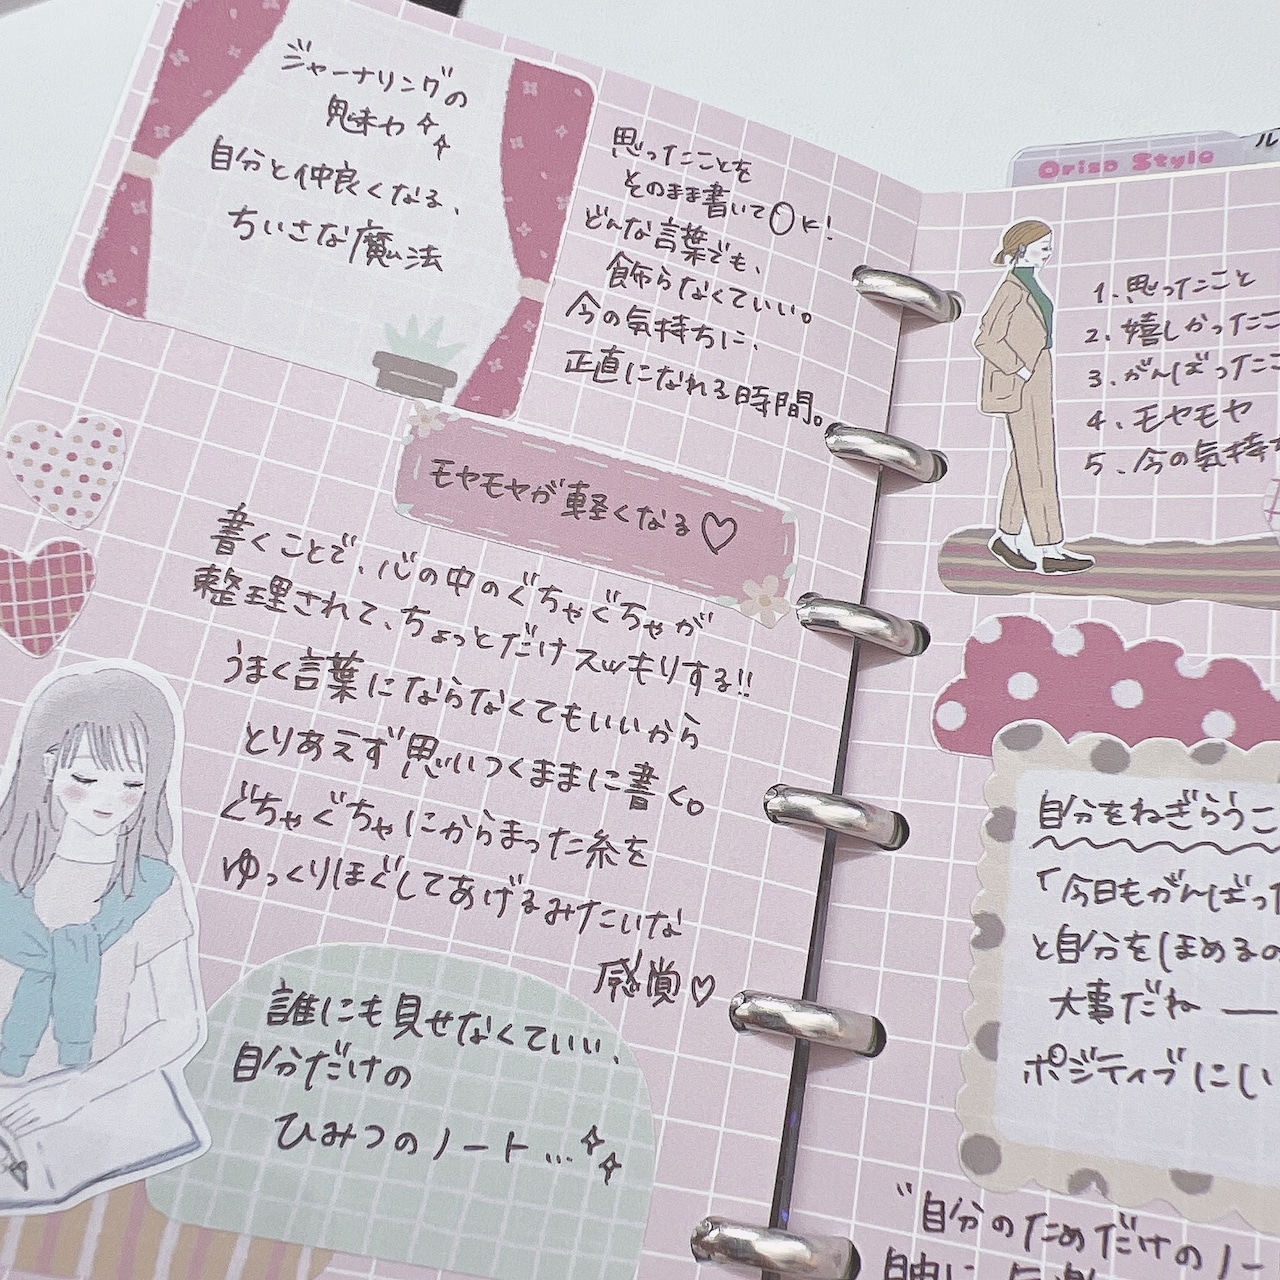 ジャーナリングの
魅力
自分と仲良くなる、
ちいさな魔法
思ったことを
そのまま書いてOK!
どんな言葉でも、
飾らなくていい。
今の気持ちに、
正直になれる時間。
モヤモヤが軽くなる♡
書くことで、心の中のぐちゃぐちゃが
整理されて、ちょっとだけスッキリする!!
うまく言葉にならなくてもいいから
とりあえず思いつくままに書く。
ぐちゃぐちゃにからまった糸を
ゆっくりほどしてあげるみたいな
感覚♡
誰にも見せなくていい、
自分だけの
ひみつのノート…
Oriso Style
ル
1. 思ったこと
2. 嬉しかったこ
3. がんばったこ
4. モヤモヤ
5. 今の気持ち
自分をねぎらうこ
「今日もがんばった
と自分をほめるの
大事だね ―
ポジティブにし
"自分のためだけのノー
自由に